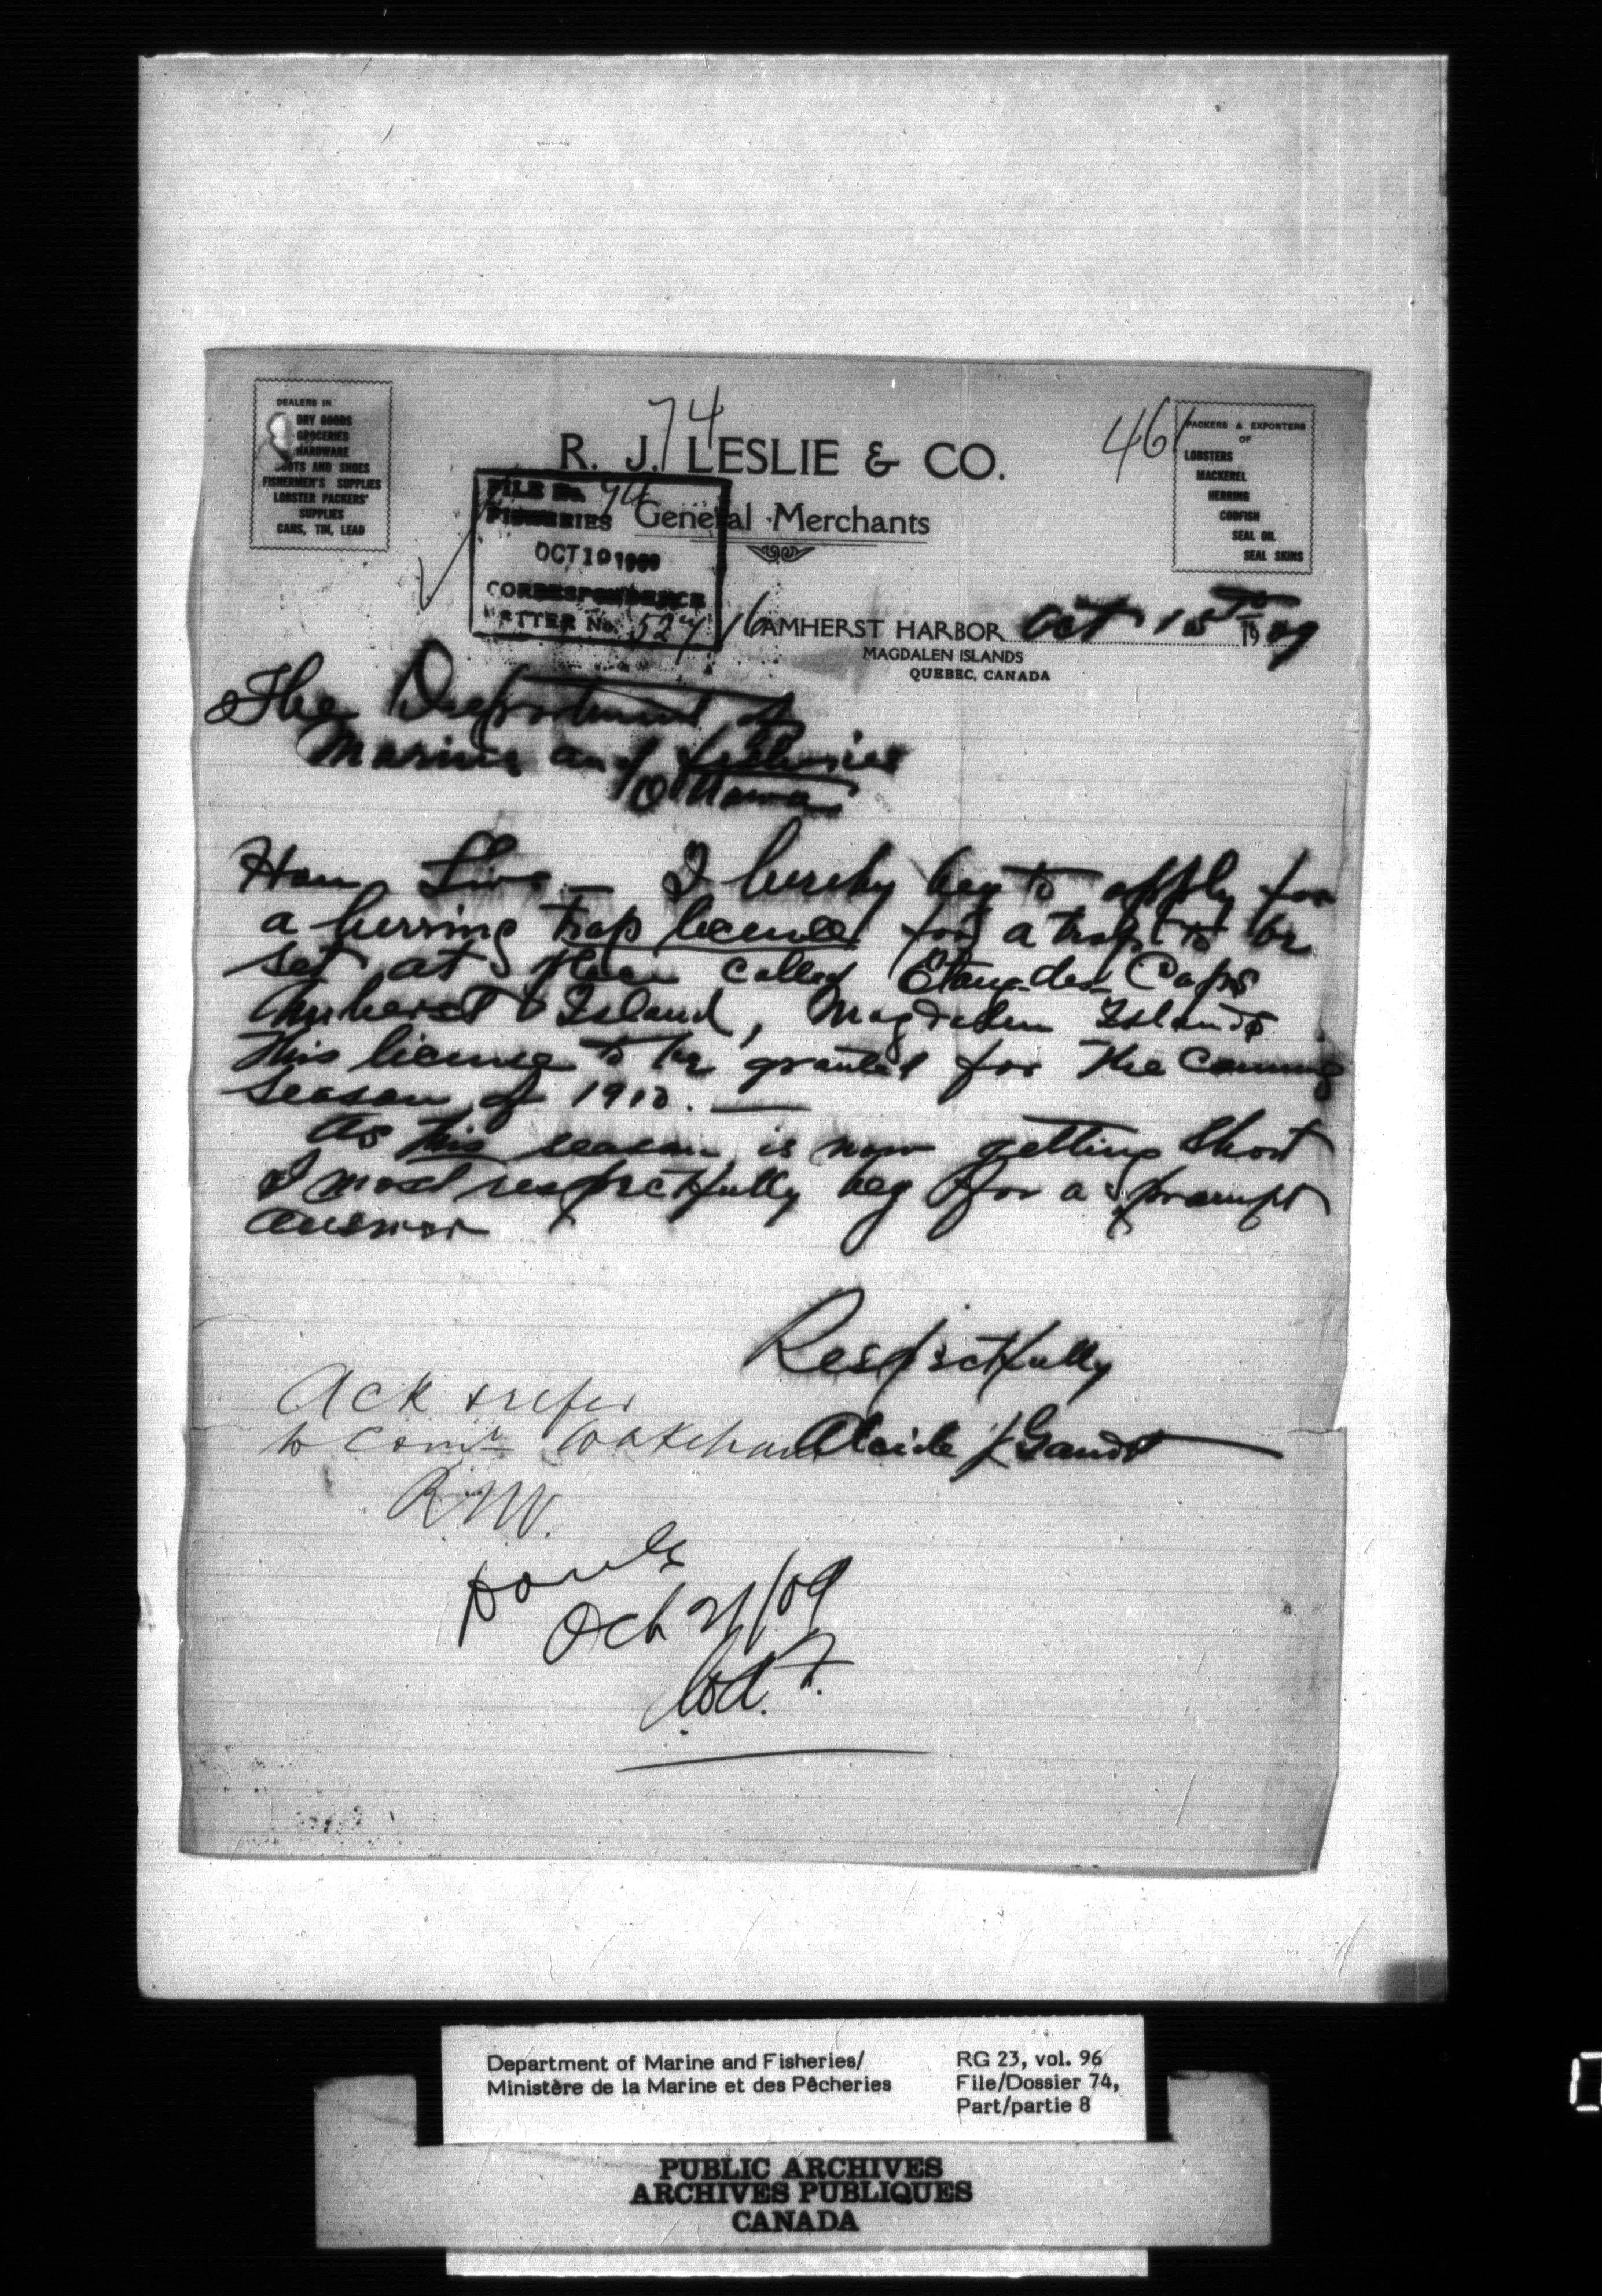 74
461
DEALERS IN
DRY GOODS
GROCERIES
HARDWARE
BOOTS AND SHOES
FISHERMEN'S SUPPLIES
LOBSTER PACKERS'
SUPPLIES
CANS, TIN, LEAD
R. J. LESLIE & CO.
General Merchants
PACKERS & EXPORTERS
OF
LOBSTERS
MACKEREL
HERRING
CODFISH
SEAL OIL
SEAL SKINS
FILE No. 74
FISHERIES
OCT 19 1909
CORRESPONDENCE
LETTER No.
16
AMHERST HARBOR Oct 15th 1909
MAGDALEN ISLANDS
QUEBEC, CANADA
The Department of
Marine and fisheries
Ottawa
Hon Sirs — I hereby beg to apply for
a herring trap license for a trap to be
set at place called Etang-des-Caps
Amherst Island, Magdalen Islands
This license to be granted for the coming
season of 1910. —
As this season is now getting short
I most respectfully beg for a prompt
answer
Respectfully
Ack & refer
to Comr Wakeham
Alcide J Gaudet
R.N.V.
Oct 21/09
Department of Marine and Fisheries/
Ministère de la Marine et des Pêcheries
RG 23, vol. 96
File/Dossier 74,
Part/partie 8
PUBLIC ARCHIVES
ARCHIVES PUBLIQUES
CANADA